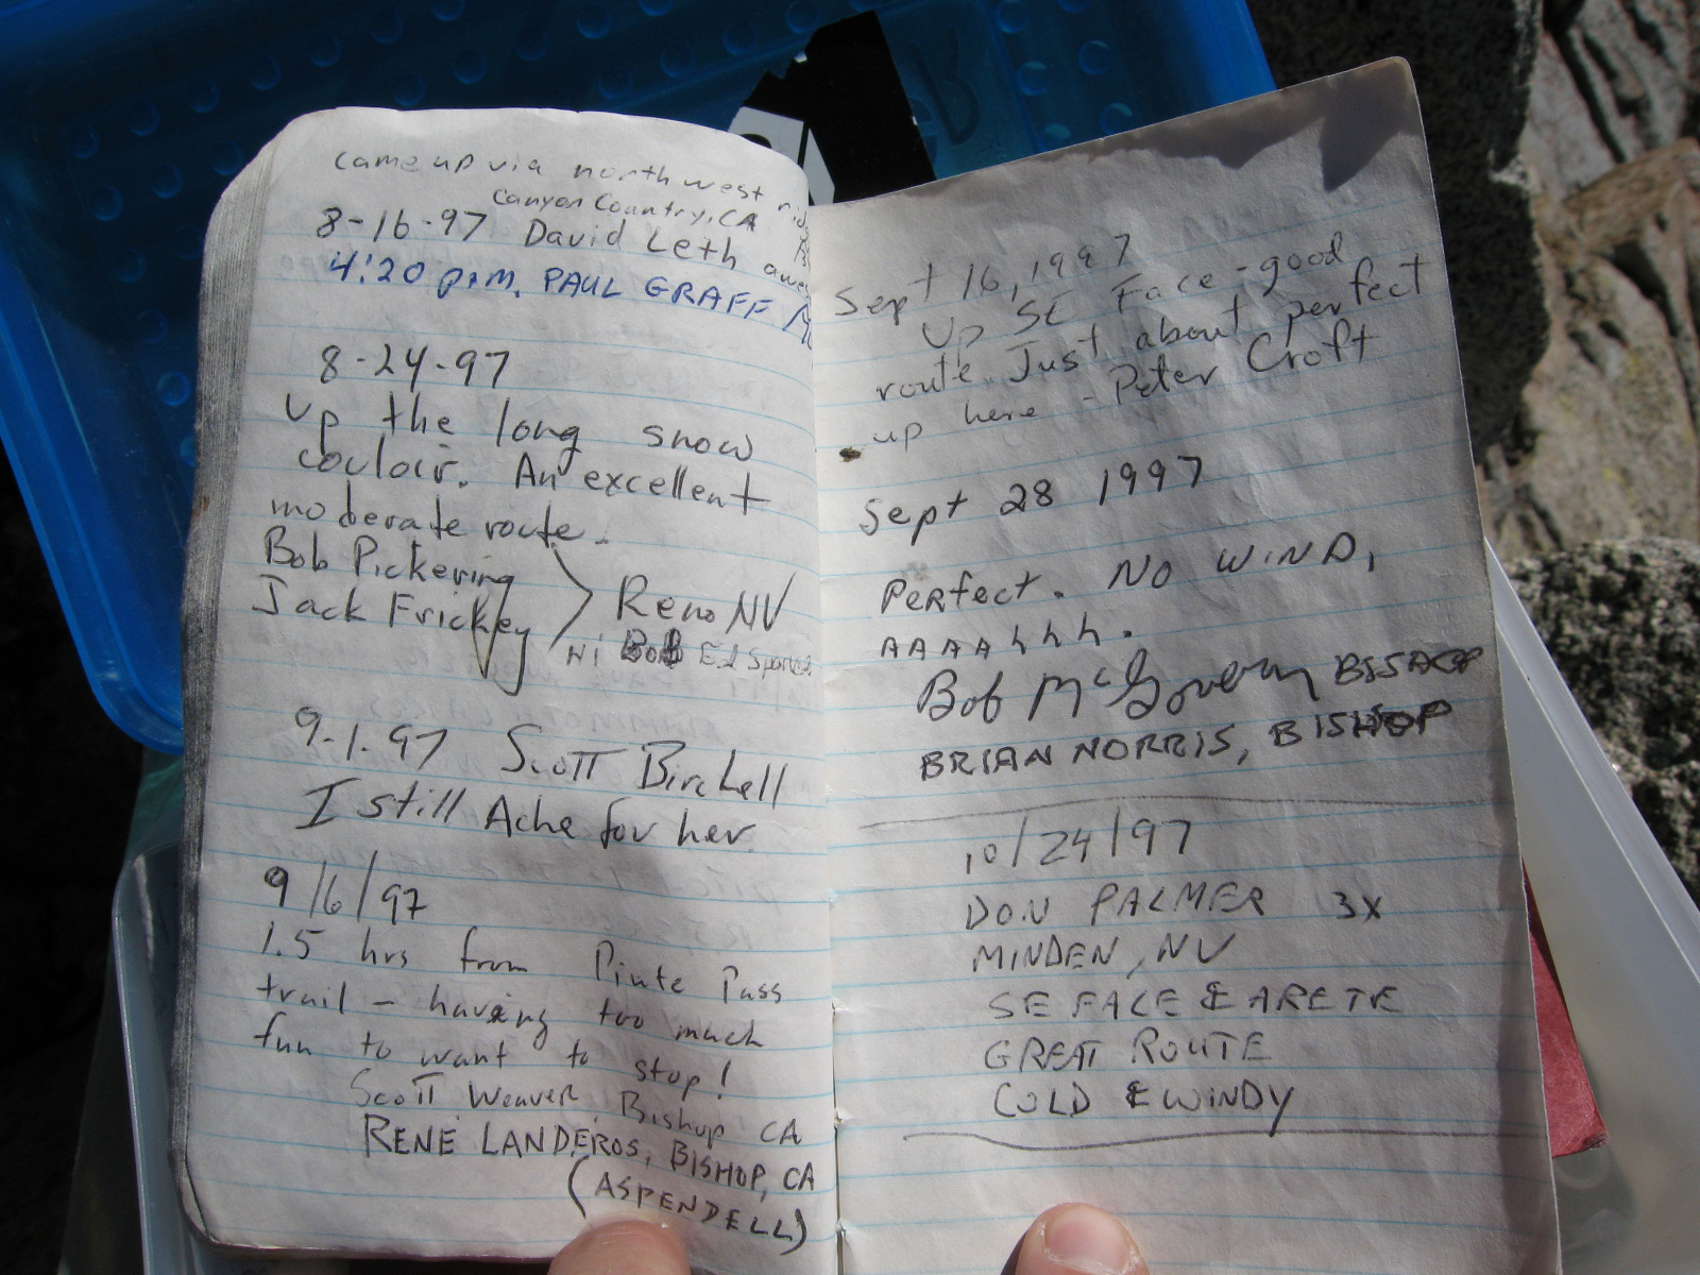 came up via northwest
Canyon Country, CA
8-16-97 David Leth
4:20 p.m. PAUL GRAFF
8-24-97
up the long snow
couloir. An excellent
moderate route.
Bob Pickering
Jack Frickey
Reno NV
Hi Bob Ed
9-1-97 Scott Birchell
I still Ache for her.
9/6/97
1.5 hrs from Piute Pass
trail - having too much
fun to want to stop!
Scott Weaver, Bishop CA
RENE LANDEROS, BISHOP, CA
(ASPENDELL)
Sept 16, 1997
Up SE Face - good
route. Just about perfect
up here - Peter Croft
Sept 28 1997
Perfect. NO WIND,
AAAAhhh.
Bob McGovern BISHOP
BRIAN NORRIS, BISHOP
10/24/97
DON PALMER 3X
MINDEN, NV
SE FACE & ARETE
GREAT ROUTE
COLD & WINDY